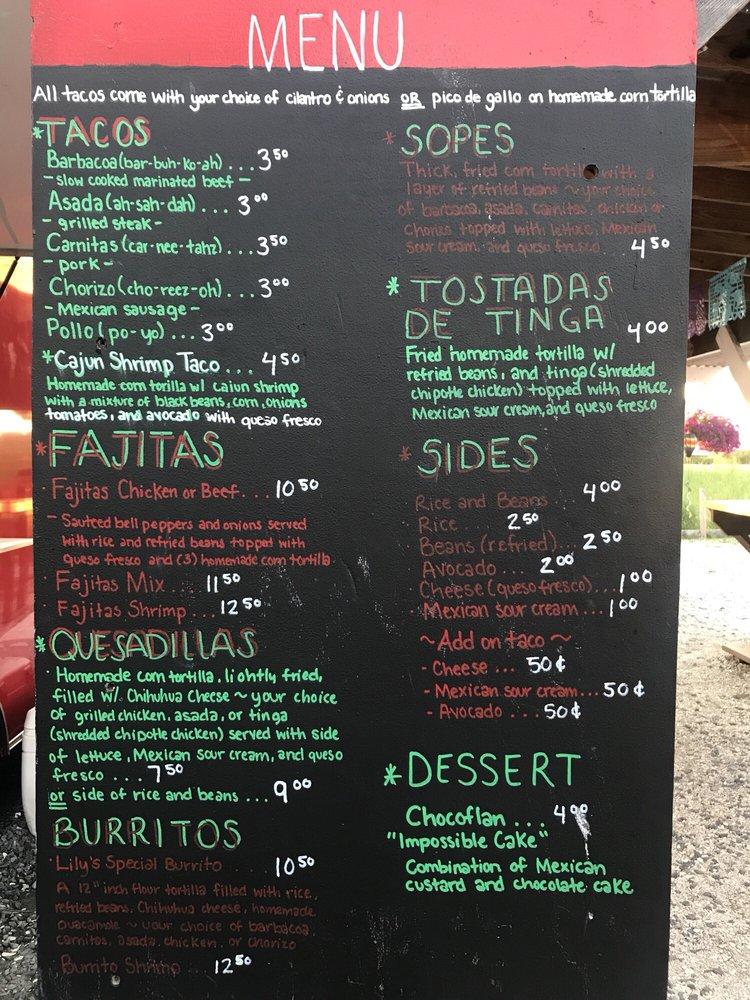 MENU
All tacos come with your choice of cilantro & onions OR pico de gallo on homemade corn tortilla
*TACOS
Barbacoa (bar-buh-ko-ah) ... 3 50
- slow cooked marinated beef -
Asada (ah-sah-dah) ... 3 00
- grilled steak -
Carnitas (car-nee-tahz) ... 3 50
- pork -
Chorizo (cho-reez-oh) ... 3 00
- Mexican sausage -
Pollo (po-yo) ... 3 00
*Cajun Shrimp Taco ... 4 50
Homemade corn torilla w/ cajun shrimp
with a mixture of black beans, corn, onions
tomatoes, and avocado with queso fresco
*FAJITAS
· Fajitas Chicken or Beef... 10 50
- Sauteed bell peppers and onions served
with rice and refried beans topped with
queso fresco and (3) homemade corn tortilla
· Fajitas Mix ... 11 50
· Fajitas Shrimp ... 12 50
*QUESADILLAS
· Homemade corn tortilla, lightly fried,
filled w/ Chihuhua Cheese ~ your choice
of grilled chicken, asada, or tinga
(shredded chipotle chicken) served with side
of lettuce, Mexican sour cream, and queso
fresco .... 7 50
or side of rice and beans ... 9 00
BURRITOS
· Lily's Special Burrito 10 50
A 12" inch flour tortilla filled with rice,
refried beans, Chihuhua cheese, homemade
guacamole ~ your choice of barbacoa,
carnitas, asada, chicken, or chorizo
Burrito Shrimp ... 12 50
*SOPES
Thick, fried corn tortilla with a
layer of refried beans ~ your choice
of barbacoa, asada, carnitas, chicken or
Chorizo topped with lettuce, Mexican
sour cream, and queso fresco 4 50
*TOSTADAS
DE TINGA 4 00
Fried homemade tortilla w/
refried beans, and tinga (shredded
chipotle chicken) topped with lettuce,
Mexican sour cream, and queso fresco
*SIDES
Rice and Beans ... 4 00
Rice ... 2 50
Beans (refried)... 2 50
Avocado ... 2 00
Cheese (queso fresco)... 1 00
Mexican sour cream ... 1 00
~ Add on taco ~
- Cheese ... 50¢
- Mexican sour cream... 50¢
- Avocado .... 50¢
*DESSERT
Chocoflan ... 4 00
"Impossible Cake"
Combination of Mexican
custard and chocolate cake